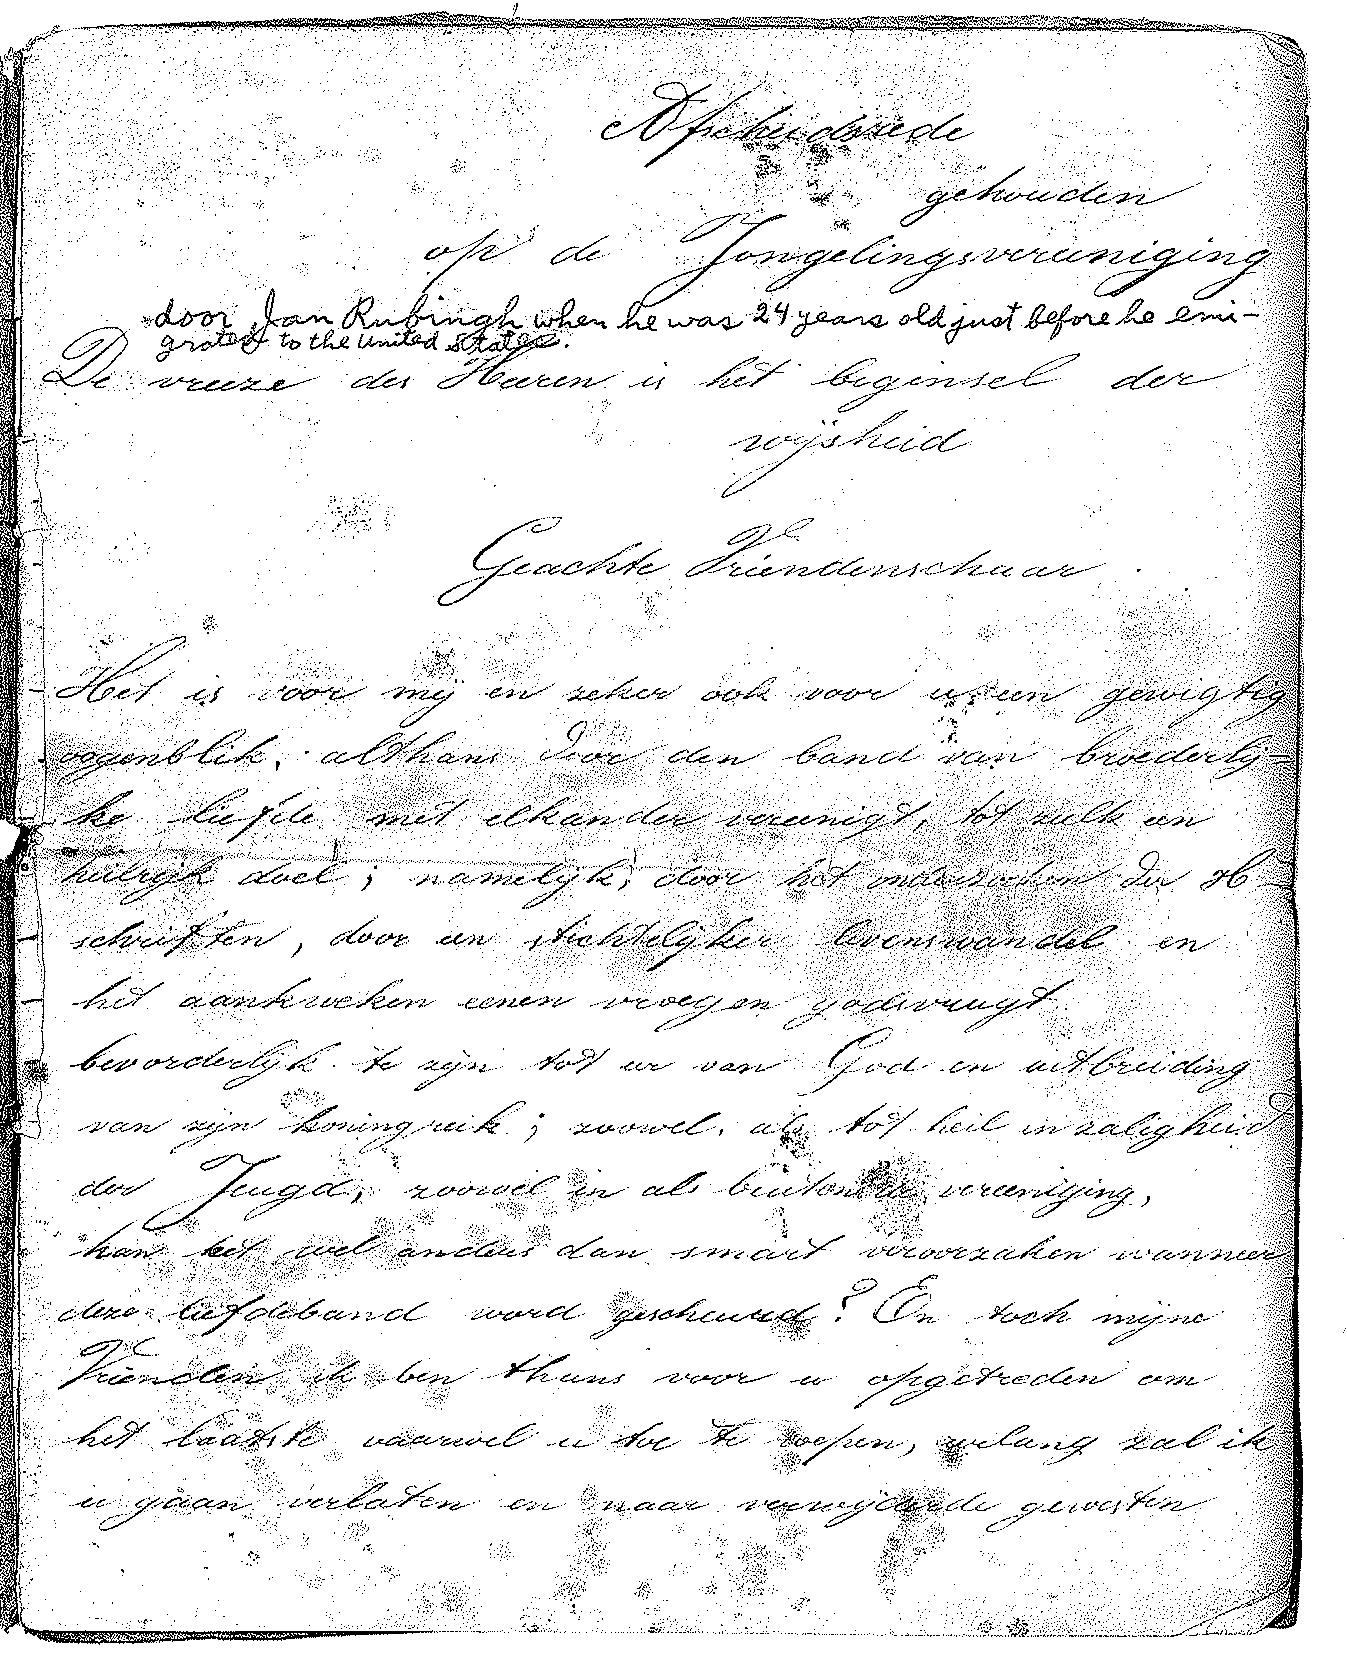 Afscheidsrede
gehouden
op de Jongelingsvereeniging
door Jan Rubingh when he was 24 years old just before he emi-
grated to the United States.
De vreeze des Heeren is het beginsel der
wijsheid
Geachte Vriendenschaar
Het is voor mij en zeker ook voor u een gewigtig
oogenblik, althans door den band van broederlij-
ke liefde met elkander vereenigt, tot zulk een
heilrijk doel; namelijk, door het onderzoeken der H
schriften, door een stichtelijker levenswandel en
het aankweken eenen vroegen godsvrugt
bevorderlijk te zijn tot eer van God en uitbreiding
van zijn koningreik; zoowel als tot heil en zaligheid
der Jeugd, zoowel in als buiten de vereeniging,
kan het wel anders dan smart veroorzaken wanneer
deze liefdeband word gescheurd? En toch mijne
Vrienden ik ben thans voor u opgetreden om
het laatste vaarwel u toe te roepen, welang zal ik
u gaan verlaten en naar verwijderde gewesten